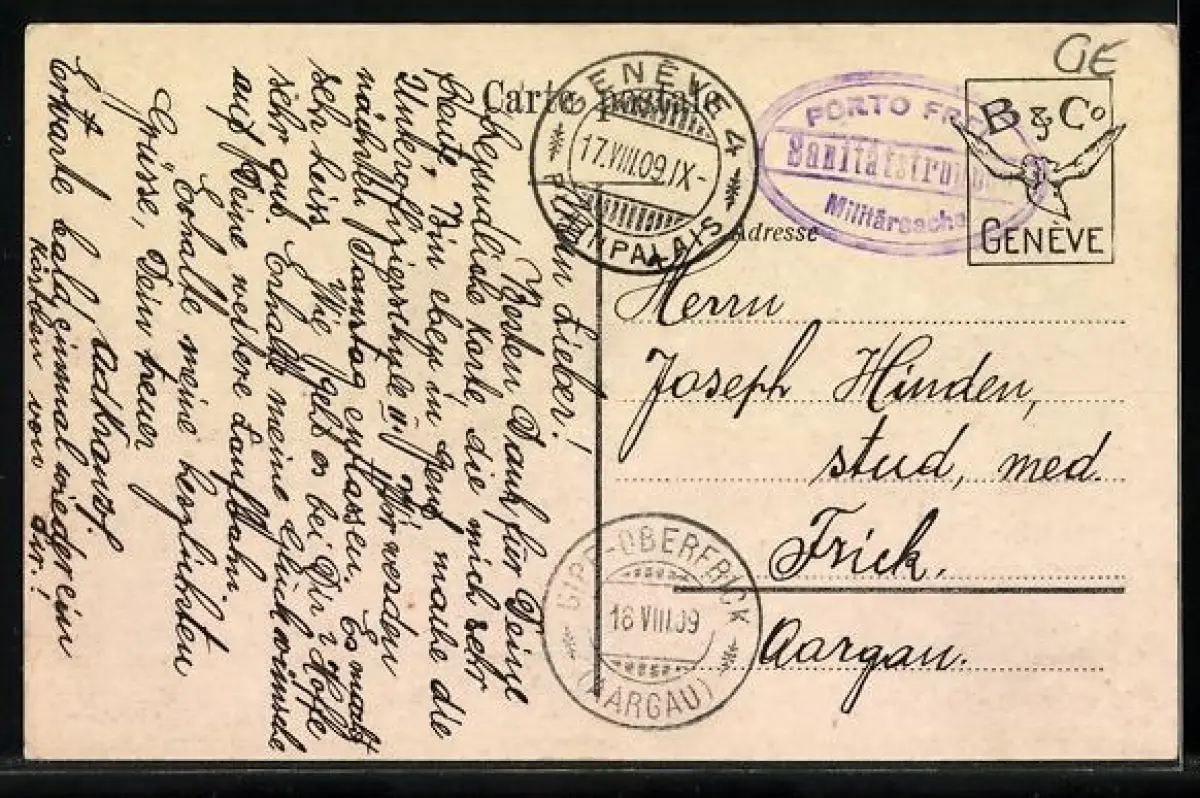 GE
Carte postale
GENÈVE 4
17.VIII.09.IX-
PLAINPALAIS
PORTO FREI
Sanitätstruppen
Militärsache
B & Co
GENÈVE
Adresse
Herrn
Joseph Hinden,
stud, med.
Frick.
Aargau.
GIPF-OBERFRICK
18 VIII.09
(AARGAU)
Mein Lieber!
Besten Dank für Deine
freundliche Karte, die mich sehr
freute, Bin eben in Genf mache die
Unteroffiziersschule II. Wir werden
nächsten Samstag entlassen. Es macht
sehr heiss. Wie geht es bei Dir? Hoffe
sehr gut. Erhalte meine Glückwünsche
auf Deine weitere Laufbahn.
Erhalte meine herzlichsten
Grüsse, Dein treuer
Erwarte bald einmal wieder ein
Kärtchen von Dir!